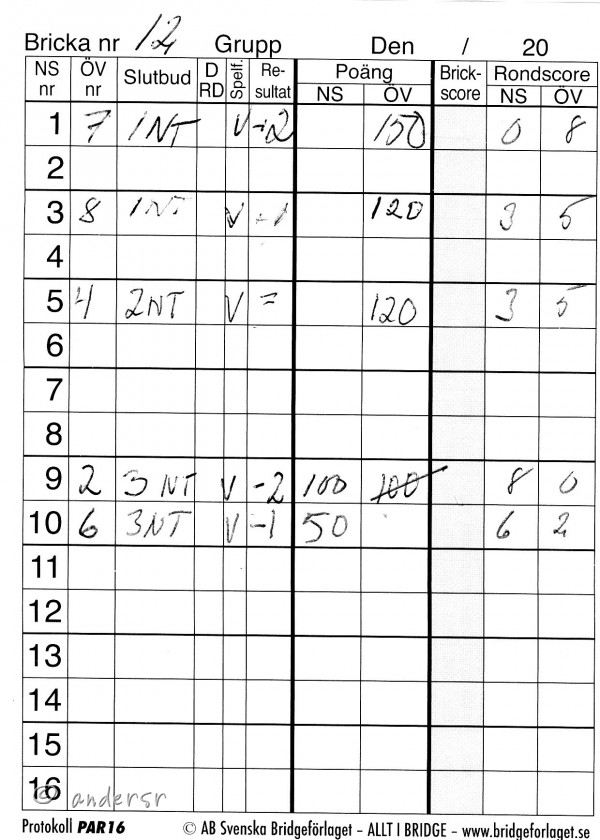 Bricka nr 12 Grupp Den / 20
NS nr ÖV nr Slutbud D RD Spelf. Re-sultat Poäng NS ÖV Brick-score Rondscore NS ÖV
1 7 1NT V +2 150 0 8
2
3 8 1NT V +1 120 3 5
4
5 4 2NT V = 120 3 5
6
7
8
9 2 3NT V -2 100 100 8 0
10 6 3NT V -1 50 6 2
11
12
13
14
15
16
© andersr
Protokoll PAR16 © AB Svenska Bridgeförlaget – ALLT I BRIDGE – www.bridgeforlaget.se